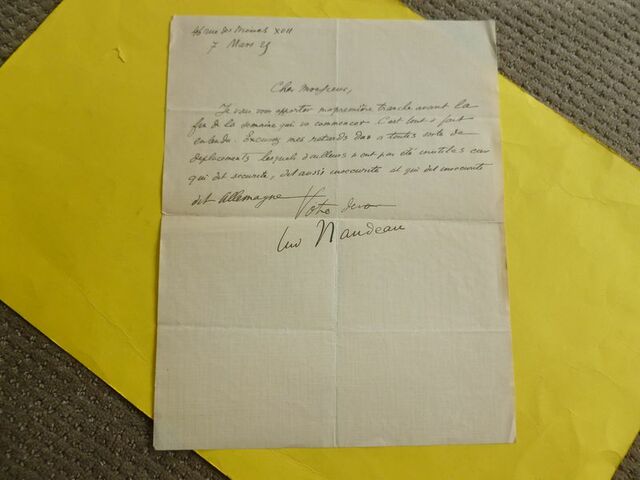 46 rue des Moines XVII
7 Mars 25
Cher Monsieur,
Je vais vous apporter ma première tranche avant la
fin de la semaine qui va commencer. C'est tout à fait
entendu. Excusez mes retards dus a toutes sorte de
déplacements lesquels d'ailleurs n'ont pas été inutiles car
qui dit sécurité, dit aussi insécurité et qui dit insécurité
dit Allemagne
Votre dévoué
Naudeau